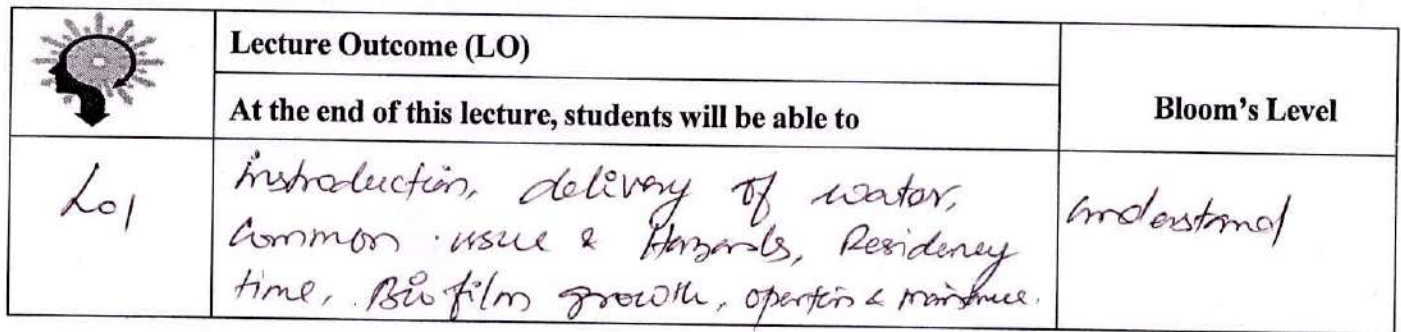 Lecture Outcome (LO)
At the end of this lecture, students will be able to
Bloom's Level
Lo1
Introduction, delivery of water,
Common issue & Hazards, Residency
time, Bio film growth, opertin &
understand